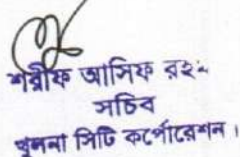 শরীফ আসিফ রহঃ
সচিব
খুলনা সিটি কর্পোরেশন।